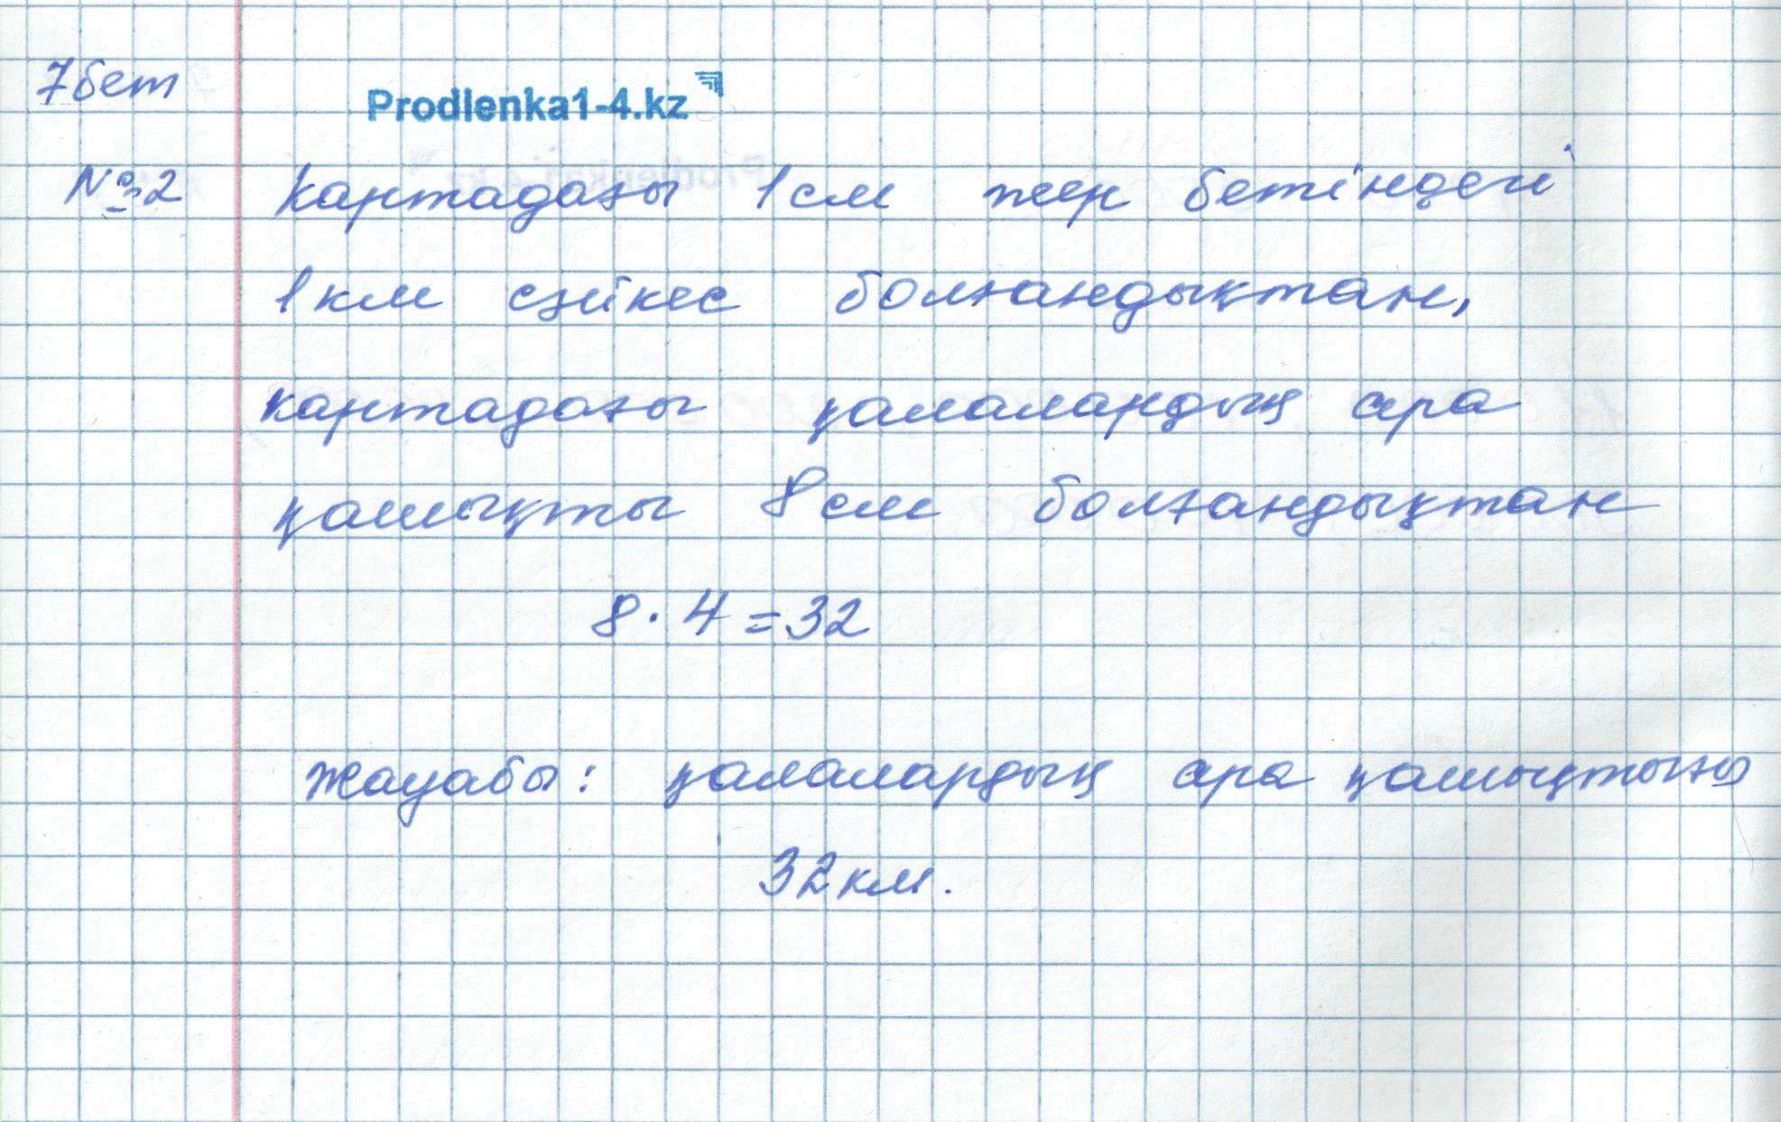 7 бет
Prodlenka1-4.kz
№2 Картадағы 1 см жер бетіндегі
1 км сәйкес болғандықтан,
картадағы қалалардың ара
қашықты 8 см болғандықтан
8 · 4 = 32
Жауабы: қалалардың ара қашықтығы
32 км.